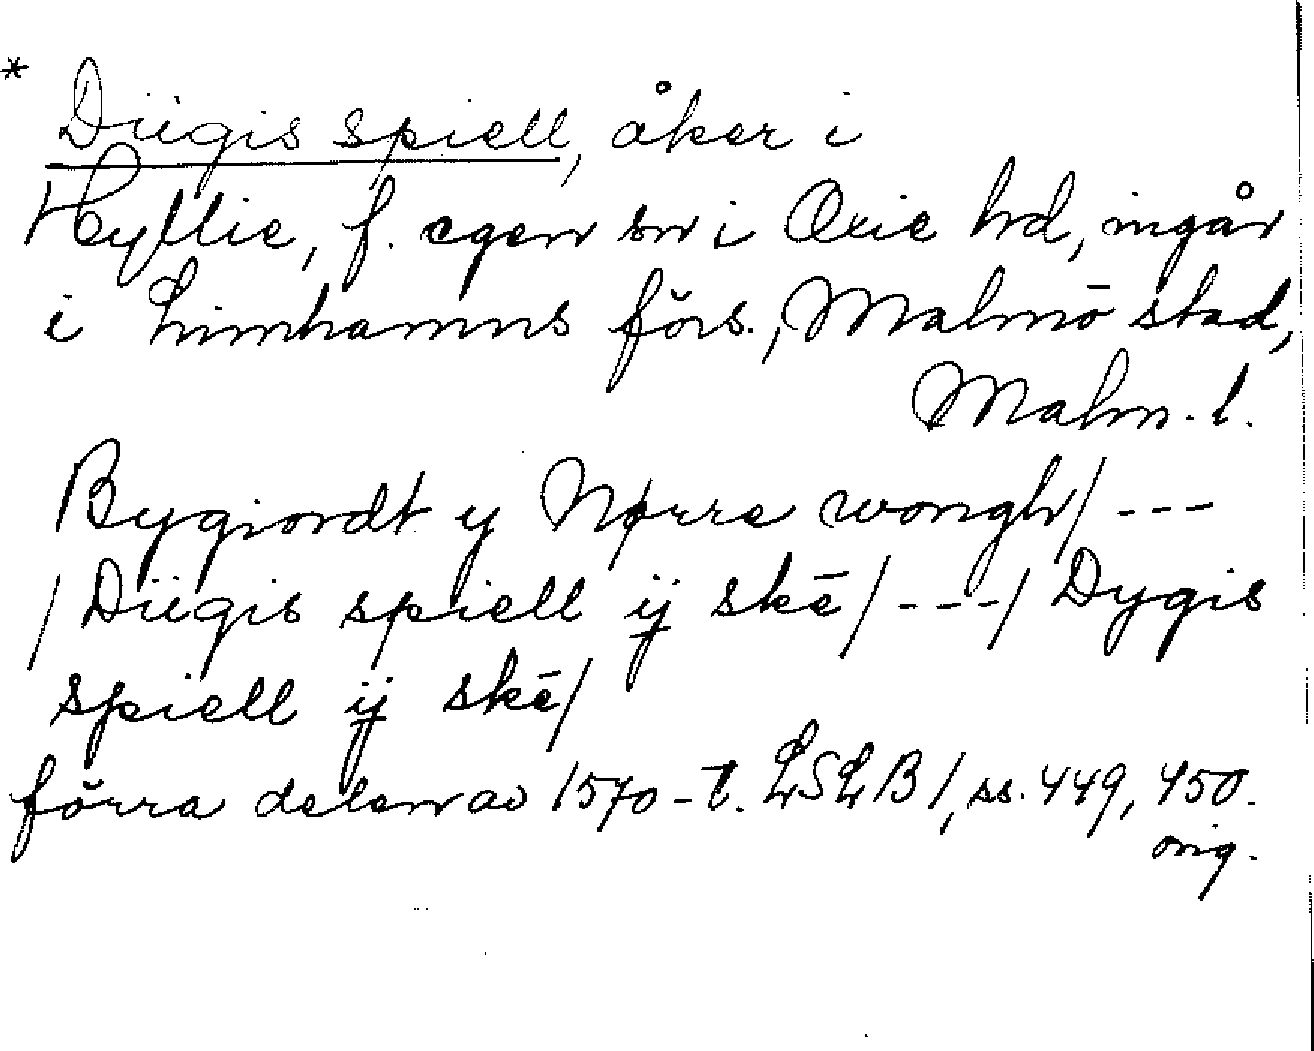 * Dügis spiell, åker i
Hyllie, f. egen sn i Oxie hd, ingår
i Limhamns förs., Malmö stad,
Malm. l.
Bygiordt y Nørre wongh/ ---
/ Dügis spiell ij skē/ ---/ Dygis
spiell ij skē/
förra delen av 1570-t. LSLB 1, ss. 449, 450.
orig.